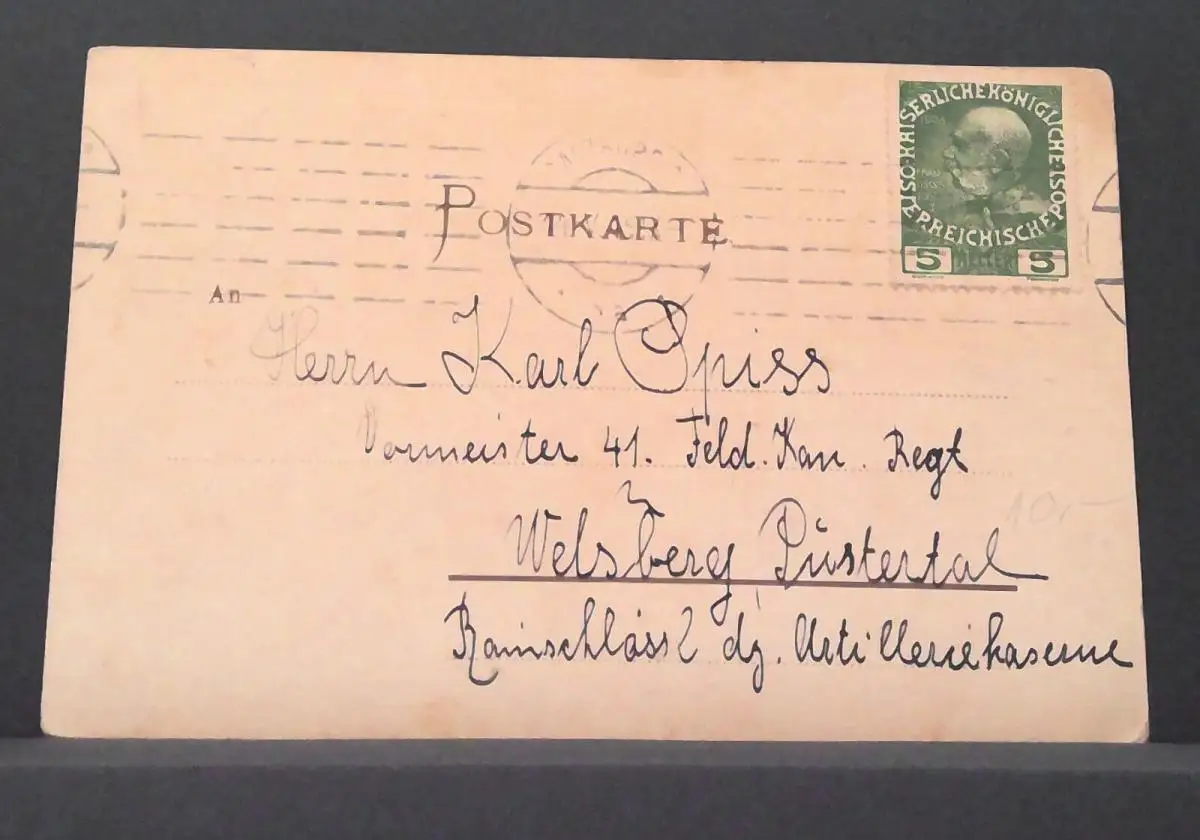 KAISERLICHEKÖNIGLICHE ÖSTERREICHISCHE POST
5 HELLER 5
POSTKARTE
An
Herrn Karl Spiss
Vormeister 41. Feld. Kan. Regt
in
Welsberg Pustertal
dz. Artilleriekaserne
10,-